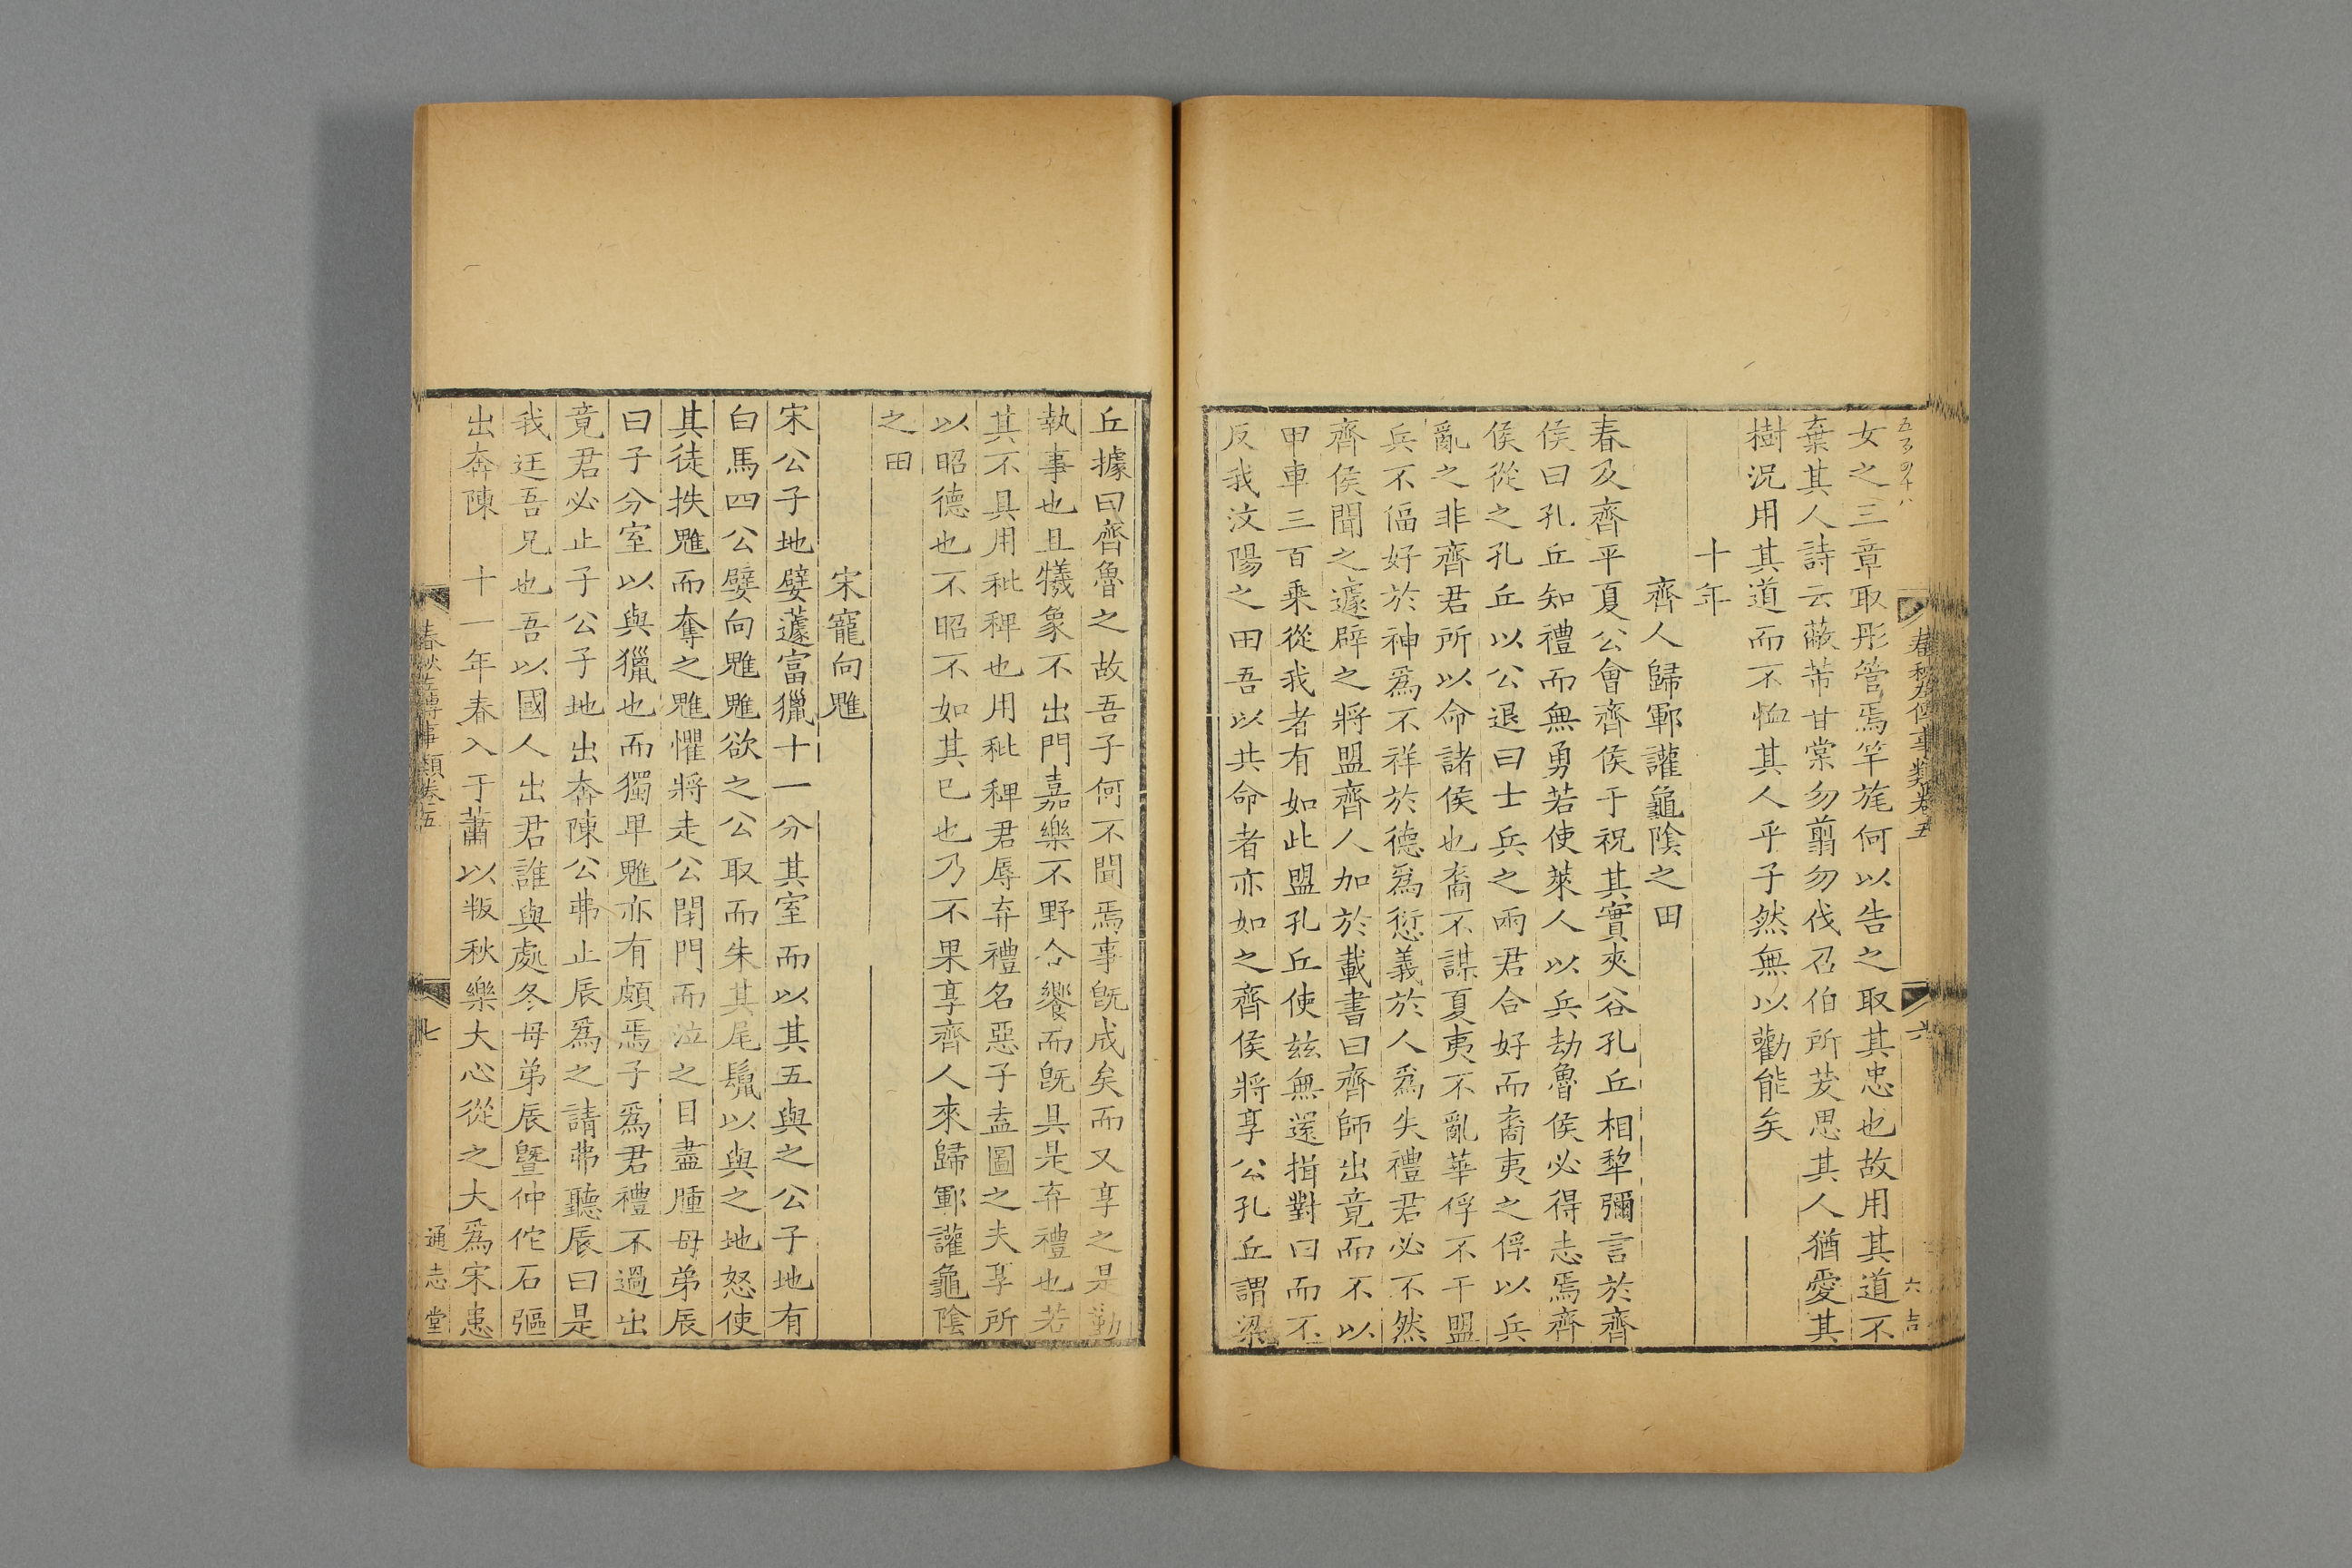 女之三章取彤管焉竿旄何以告之取其忠也故用其道不
棄其人詩云蔽芾甘棠勿翦勿伐召伯所茇思其人猶愛其
樹況用其道而不恤其人乎子然無以勸能矣
十年
齊人歸鄆讙龜陰之田
春及齊平夏公會齊侯于祝其實夾谷孔丘相犂彌言於齊
侯曰孔丘知禮而無勇若使萊人以兵劫魯侯必得志焉齊
侯從之孔丘以公退曰士兵之兩君合好而裔夷之俘以兵
亂之非齊君所以命諸侯也裔不謀夏夷不亂華俘不干盟
兵不偪好於神爲不祥於德爲愆義於人爲失禮君必不然
齊侯聞之遽辟之將盟齊人加於載書曰齊師出竟而不以
甲車三百乘從我者有如此盟孔丘使兹無還揖對曰而不
反我汶陽之田吾以共命者亦如之齊侯將享公孔丘謂梁
春秋左傳事類卷五
六
六吉
丘據曰齊魯之故吾子何不聞焉事旣成矣而又享之是勤
執事也且犧象不出門嘉樂不野合饗而旣具是弃禮也若
其不具用秕稗也用秕稗君辱弃禮名惡子盍圖之夫享所
以昭德也不昭不如其已也乃不果享齊人來歸鄆讙龜陰
之田
宋寵向魋
宋公子地嬖蘧富獵十一分其室而以其五與之公子地有
白馬四公嬖向魋魋欲之公取而朱其尾鬛以與之地怒使
其徒抶魋而奪之魋懼將走公閉門而泣之目盡腫母弟辰
曰子分室以與獵也而獨卑魋亦有頗焉子爲君禮不過出
竟君必止子公子地出奔陳公弗止辰爲之請弗聽辰曰是
我迋吾兄也吾以國人出君誰與處冬母弟辰曁仲佗石彄
出奔陳　十一年春入于蕭以叛秋樂大心從之大爲宋患
春秋左傳事類卷五
七
通志堂